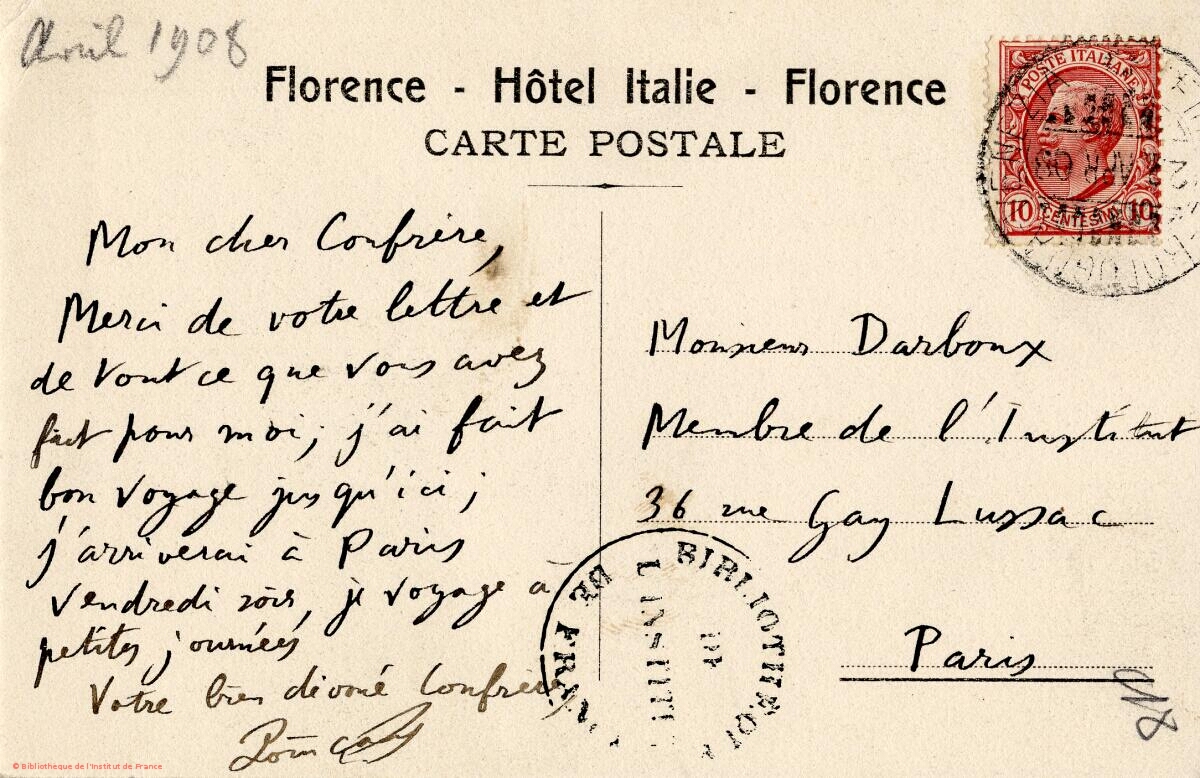 Avril 1908
Florence - Hôtel Italie - Florence
CARTE POSTALE
POSTE ITALIANE
10 CENTESIMI 10
Mon cher Confrère,
Merci de votre lettre et
de tout ce que vous avez
fait pour moi; j'ai fait
bon voyage jusqu'ici;
j'arriverai à Paris
vendredi soir, je voyage à
petites journées
Votre bien dévoué Confrère,
Poincaré
Monsieur Darboux
Membre de l'Institut
36 rue Gay Lussac
Paris
BIBLIOTHEQU
DE
L'INSTITUT
DE FRAN
© Bibliotheque de l'Institut de France